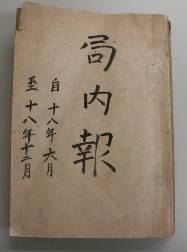 局内報
自 十八年六月
至 十八年十二月